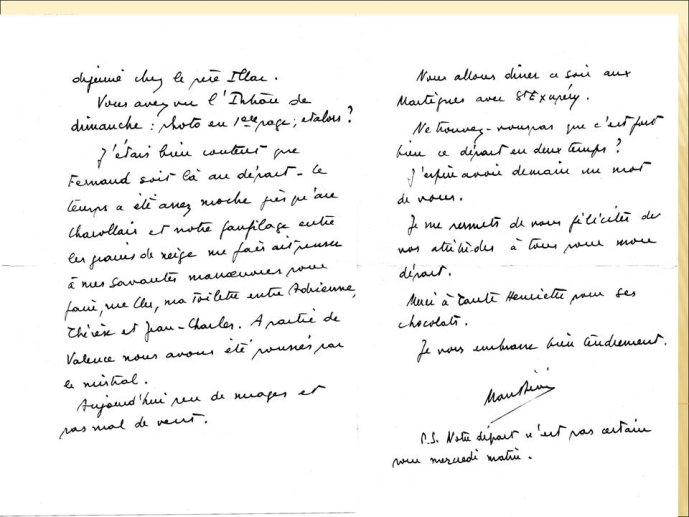 déjeuné chez le père Illac.
Vous avez vu l'Intran de
dimanche : photo en 1ère page ; et alors ?
J'étais bien content que
Fernand soit là au départ - Le
temps a été assez moche jusqu'au
Charollais et notre faufilage entre
les grains de neige me faisait penser
à mes savantes manœuvres pour
faire, rue Cler, ma toilette entre Adrienne,
Thérèse et Jean-Charles. A partir de
Valence nous avons été poussés par
le mistral.
Aujourd'hui peu de nuages et
pas mal de vent.
Nous allons dîner ce soir aux
Martigues avec St Exupéry.
Ne trouvez-vous pas que c'est fort
bien ce départ en deux temps ?
J'espère avoir demain un mot
de vous.
Je me permets de vous féliciter de
vos attitudes à tous pour mon
départ.
Merci à Tante Henriette pour ses
chocolats.
Je vous embrasse bien tendrement.
P.S. Notre départ n'est pas certain
pour mercredi matin.